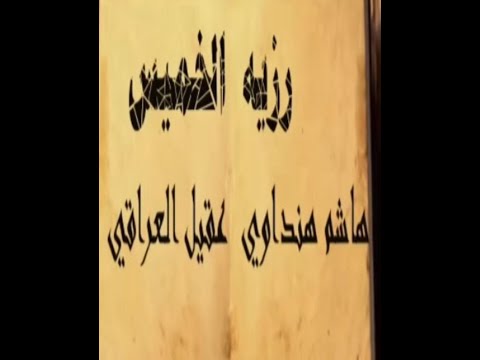 رزيه الخميس
هاشم هنداوي عقيل العراقي